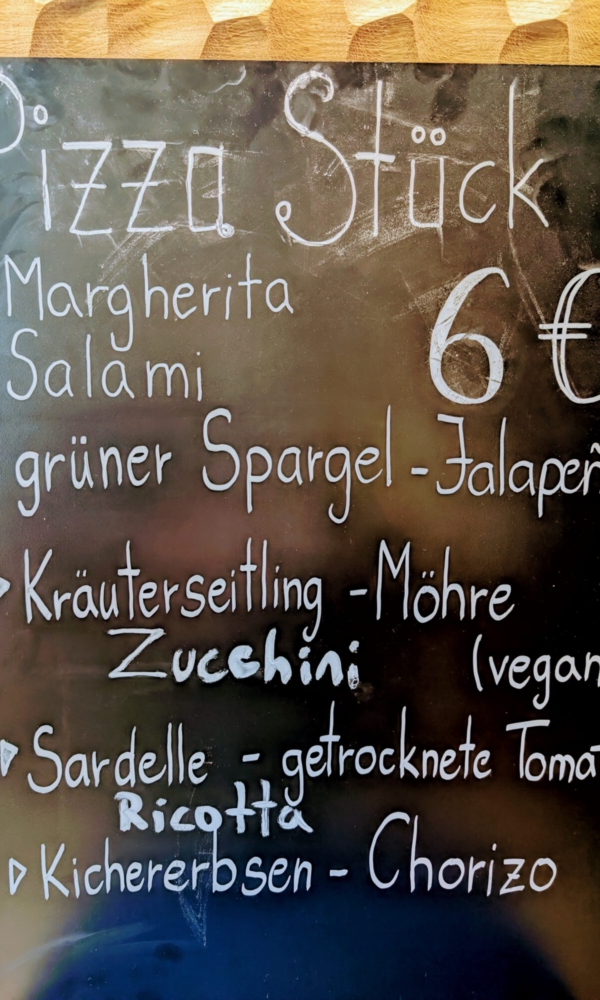 Pizza Stück
Margherita
6 €
Salami
grüner Spargel - Jalapeñ
Kräuterseitling - Möhre
Zucchini (vegan
Sardelle - getrocknete Toma
Ricotta
Kichererbsen - Chorizo